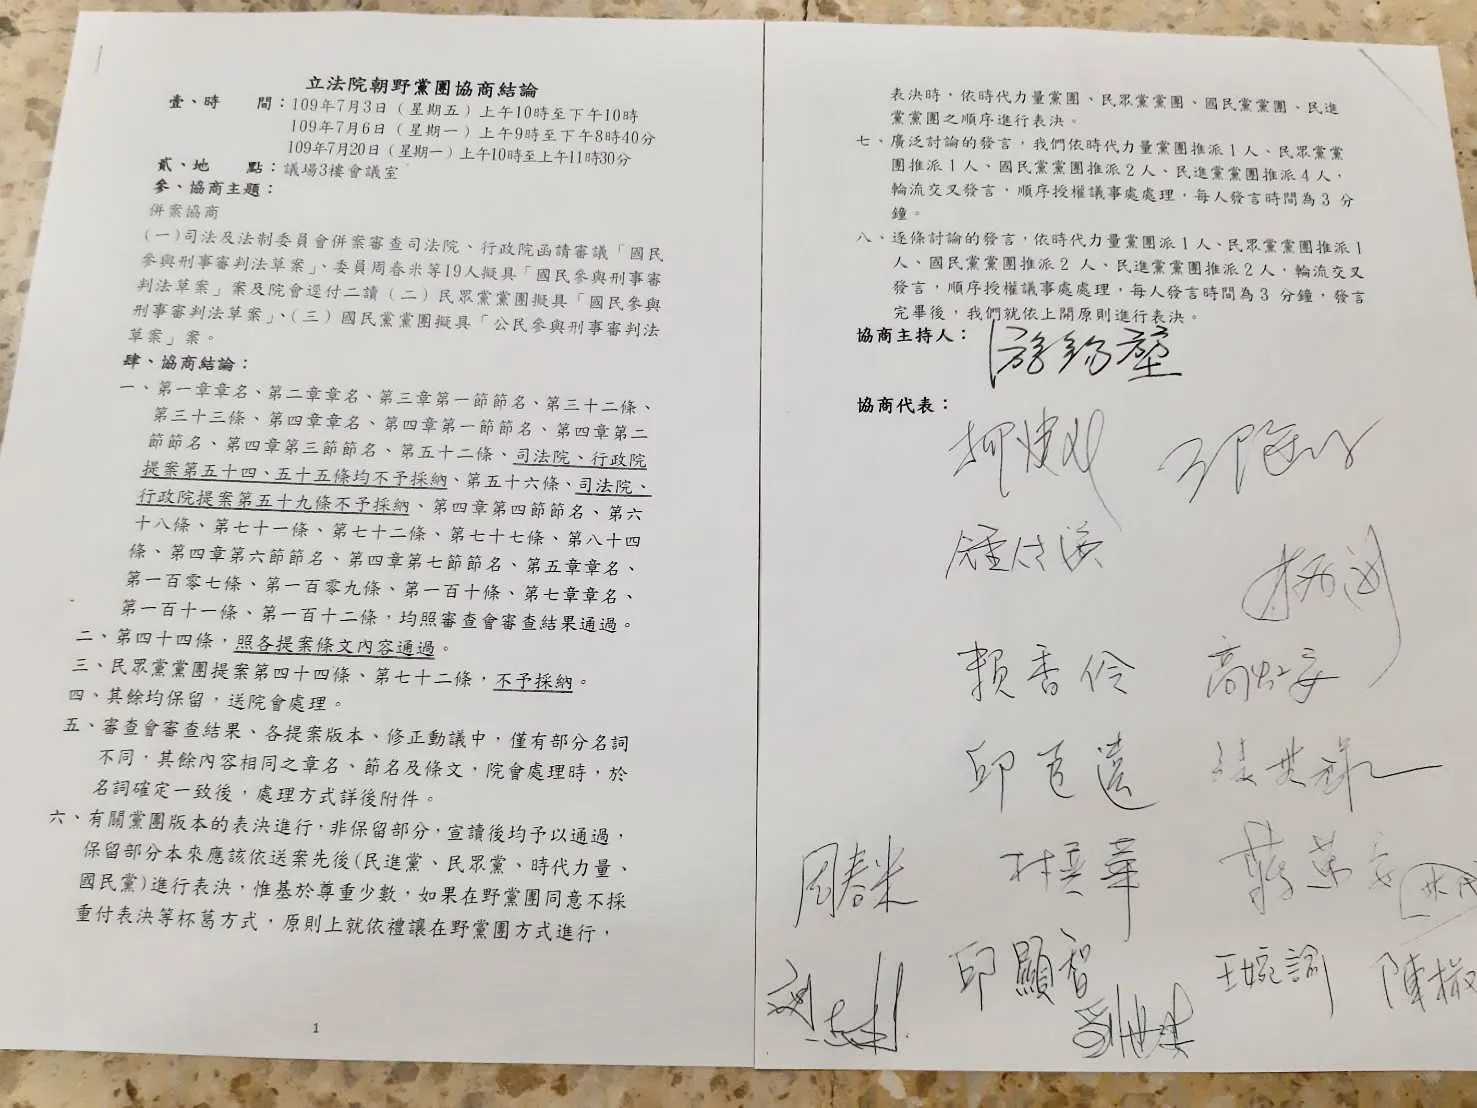 立法院朝野黨團協商結論
壹、時　　間：109年7月3日（星期五）上午10時至下午10時
109年7月6日（星期一）上午9時至下午8時40分
109年7月20日（星期一）上午10時至上午11時30分
貳、地　　點：議場3樓會議室
參、協商主題：
併案協商
(一)司法及法制委員會併案審查司法院、行政院函請審議「國民
參與刑事審判法草案」、委員周春米等19人擬具「國民參與刑事審
判法草案」案及院會逕付二讀（二）民眾黨黨團擬具「國民參與
刑事審判法草案」、（三）國民黨黨團擬具「公民參與刑事審判法
草案」案。
肆、協商結論：
一、第一章章名、第二章章名、第三章第一節節名、第三十二條、
第三十三條、第四章章名、第四章第一節節名、第四章第二
節節名、第四章第三節節名、第五十二條、司法院、行政院
提案第五十四、五十五條均不予採納、第五十六條、司法院、
行政院提案第五十九條不予採納、第四章第四節節名、第六
十八條、第七十一條、第七十二條、第七十七條、第八十四
條、第四章第六節節名、第四章第七節節名、第五章章名、
第一百零七條、第一百零九條、第一百十條、第七章章名、
第一百十一條、第一百十二條，均照審查會審查結果通過。
二、第四十四條，照各提案條文內容通過。
三、民眾黨黨團提案第四十四條、第七十二條，不予採納。
四、其餘均保留，送院會處理。
五、審查會審查結果、各提案版本、修正動議中，僅有部分名詞
不同，其餘內容相同之章名、節名及條文，院會處理時，於
名詞確定一致後，處理方式詳後附件。
六、有關黨團版本的表決進行，非保留部分，宣讀後均予以通過，
保留部分本來應該依送案先後(民進黨、民眾黨、時代力量、
國民黨)進行表決，惟基於尊重少數，如果在野黨團同意不採
重付表決等杯葛方式，原則上就依禮讓在野黨團方式進行，
1
表決時，依時代力量黨團、民眾黨黨團、國民黨黨團、民進
黨黨團之順序進行表決。
七、廣泛討論的發言，我們依時代力量黨團推派1人、民眾黨黨
團推派1人、國民黨黨團推派2人、民進黨黨團推派4人，
輪流交叉發言，順序授權議事處處理，每人發言時間為3 分
鐘。
八、逐條討論的發言，依時代力量黨團派1人、民眾黨黨團推派1
人、國民黨黨團推派2 人、民進黨黨團推派2人，輪流交叉
發言，順序授權議事處處理，每人發言時間為3 分鐘，發言
完畢後，我們就依上開原則進行表決。
協商主持人：游錫堃
協商代表：
柯建銘
鍾佳濱
賴香伶 高虹安
邱臣遠
周春米 林奕華 蔣萬安
邱顯智 王婉諭 陳椒